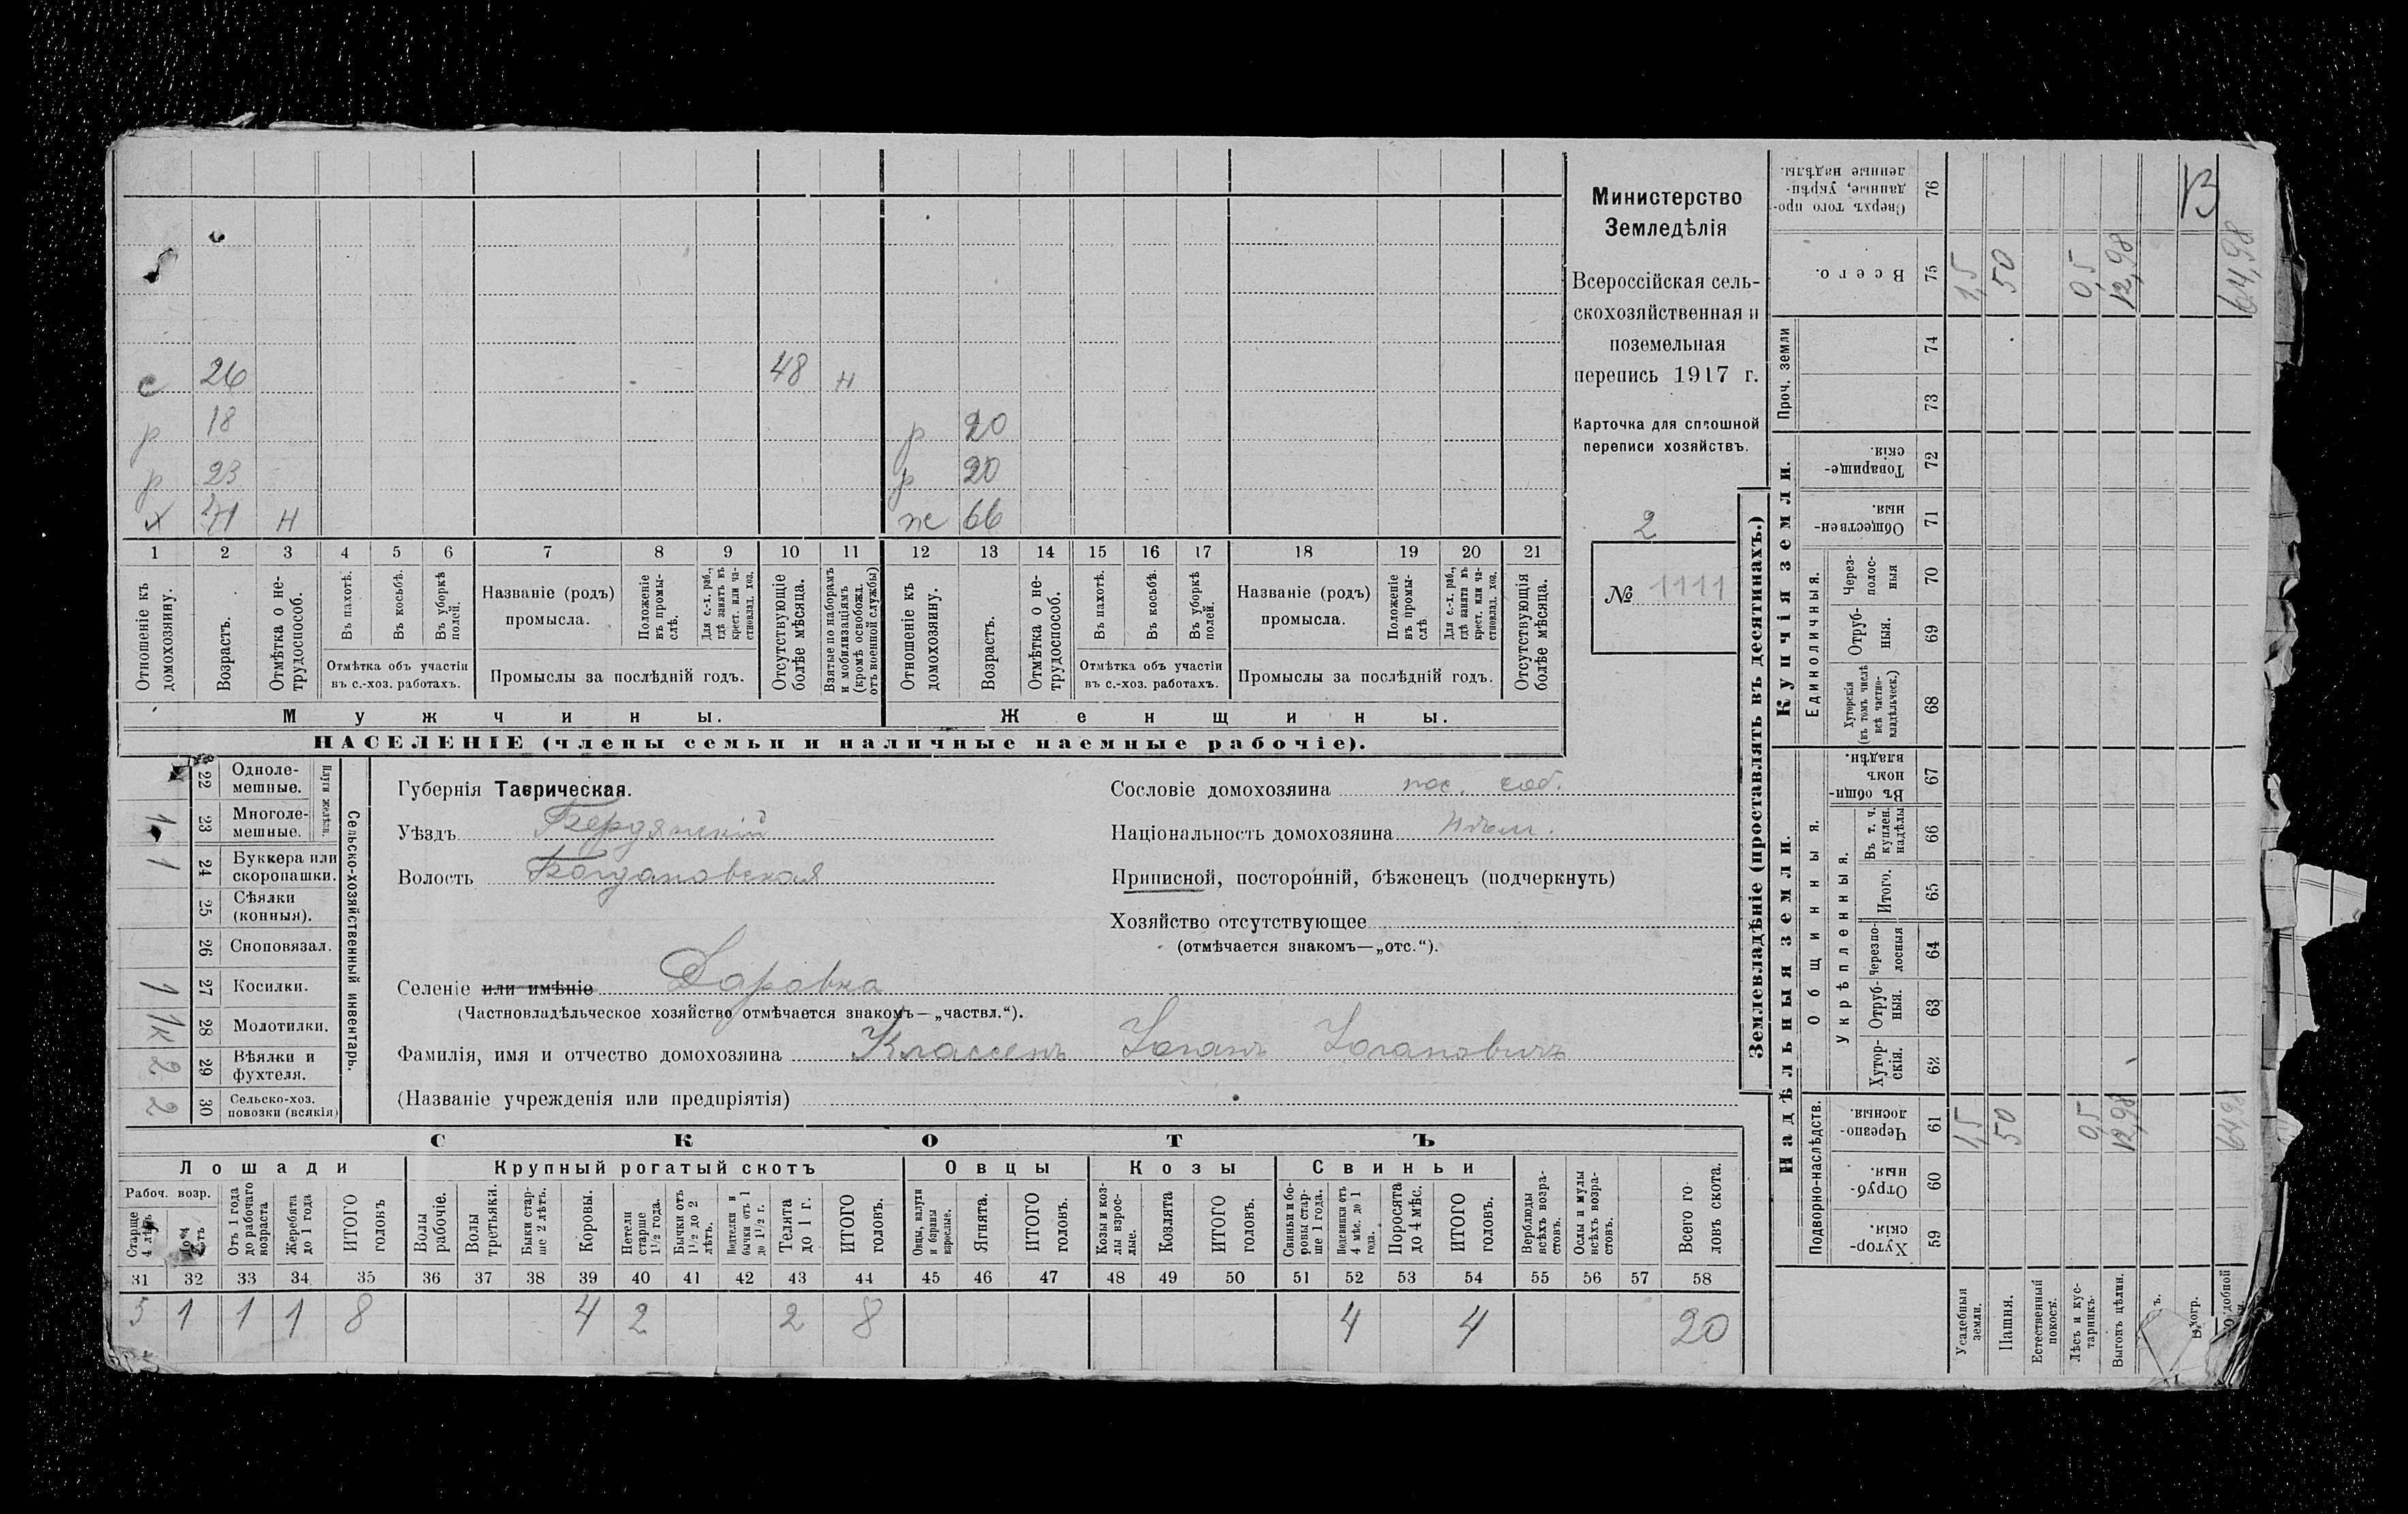 с 26 48 н
р 18 р 20
р 23 р 20
х 71 н ж 66
1 2 3 4 5 6 7 8 9 10 11 12 13 14 15 16 17 18 19 20 21
Отношеніе къ домохозяину.
Возрастъ.
Отмѣтка о нетрудоспособ.
Въ пахотѣ.
Въ косьбѣ.
Въ уборкѣ полей.
Отмѣтка объ участіи
въ с.-хоз. работахъ.
Названіе (родъ)
промысла.
Положеніе въ промыслѣ.
Для с.-х. раб., гдѣ занятъ въ крест. или частновлад. хоз.
Промыслы за послѣдній годъ.
Отсутствующіе болѣе мѣсяца.
Взятые по наборамъ и мобилизаціямъ (кромѣ освобожд. отъ военной службы)
Отношеніе къ домохозяину.
Возрастъ.
Отмѣтка о нетрудоспособ.
Въ пахотѣ.
Въ косьбѣ.
Въ уборкѣ полей.
Отмѣтка объ участіи
въ с.-хоз. работахъ.
Названіе (родъ)
промысла.
Положеніе въ промыслѣ
Для с.-х. раб., гдѣ занята въ крест. или частновлад. хоз.
Промыслы за послѣдній годъ.
Отсутствующія болѣе мѣсяца.
Мужчины. Женщины.
НАСЕЛЕНІЕ (члены семьи и наличные наемные рабочіе).
Министерство
Земледѣлія
Всероссійская сель-
скохозяйственная и
поземельная
перепись 1917 г.
Карточка для сплошной
переписи хозяйствъ.
2
№ 1111
Сельско-хозяйственный инвентарь.
Плуги желѣзн.
22 Одноле-
мешные.
1 23 Многоле-
мешные.
1 24 Буккера или
скоропашки.
25 Сѣялки
(конныя).
26 Сноповязал.
1 27 Косилки.
1к 28 Молотилки.
2 29 Вѣялки и
фухтеля.
2 30 Сельско-хоз.
повозки (всякія)
Губернія Таврическая.
Уѣздъ Бердянскій
Волость Богдановская
Сословіе домохозяина пос. соб.
Національность домохозяина нѣм.
Приписной, посторонній, бѣженецъ (подчеркнуть)
Хозяйство отсутствующее
(отмѣчается знакомъ—„отс.“).
Селеніе или имѣніе Даровка
(Частновладѣльческое хозяйство отмѣчается знакомъ—„частвл.“).
Фамилія, имя и отчество домохозяина Классенъ Іоганъ Іогановичъ
(Названіе учрежденія или предпріятія)
СКОТЪ
Лошади Крупный рогатый скотъ Овцы Козы Свиньи
Рабоч. возр.
Старше 4 лѣтъ
До 4 лѣтъ
Отъ 1 года до рабочаго возраста
Жеребята до 1 года
ИТОГО головъ
Волы рабочіе.
Волы третьяки.
Быки старше 2 лѣтъ.
Коровы.
Нетели старше 1½ года.
Бычки отъ 1½ до 2 лѣтъ.
Подтелки и бычки отъ 1 до 1½ г.
Телята до 1 г.
ИТОГО головъ.
Овцы, валухи и бараны взрослые.
Ягнята.
ИТОГО головъ.
Козы и козлы взрослые.
Козлята
ИТОГО головъ.
Свиньи и боровы старше 1 года.
Подсвинки отъ 4 мѣс. до 1 года.
Поросята до 4 мѣс.
ИТОГО головъ.
Верблюды всѣхъ возрастовъ.
Ослы и мулы всѣхъ возрастовъ.
Всего головъ скота.
31 32 33 34 35 36 37 38 39 40 41 42 43 44 45 46 47 48 49 50 51 52 53 54 55 56 57 58
5 1 1 1 8 4 2 2 8 4 4 20
Землевладѣніе (проставлять въ десятинахъ.)
Надѣльныя земли. Купчія земли.
Подворно-наслѣдств.
Общинныя.
Укрѣпленныя.
Единоличныя.
Проч. земли
Сверхъ того проданные, укрѣпленные надѣлы. 76
Всего. 75 1,5 50 0,5 12,98 64,98
74
73
Товарищескія. 72
Общественныя. 71
Черезполосныя 70
Отрубныя. 69
Хуторскія (въ томъ числѣ всѣ частновладѣльческ.) 68
Въ общинномъ владѣн. 67
Въ т. ч. куплен. надѣлы 66
Итого. 65
Черезполосныя 64
Отрубныя. 63
Хуторскія. 62
Черезполосныя. 61 1,5 50 0,5 12,98 64,98
Отрубныя. 60
Хуторскія. 59
Усадебныя земли.
Пашня.
Естественный покосъ.
Лѣсъ и кустарникъ.
Выгонъ цѣлин.